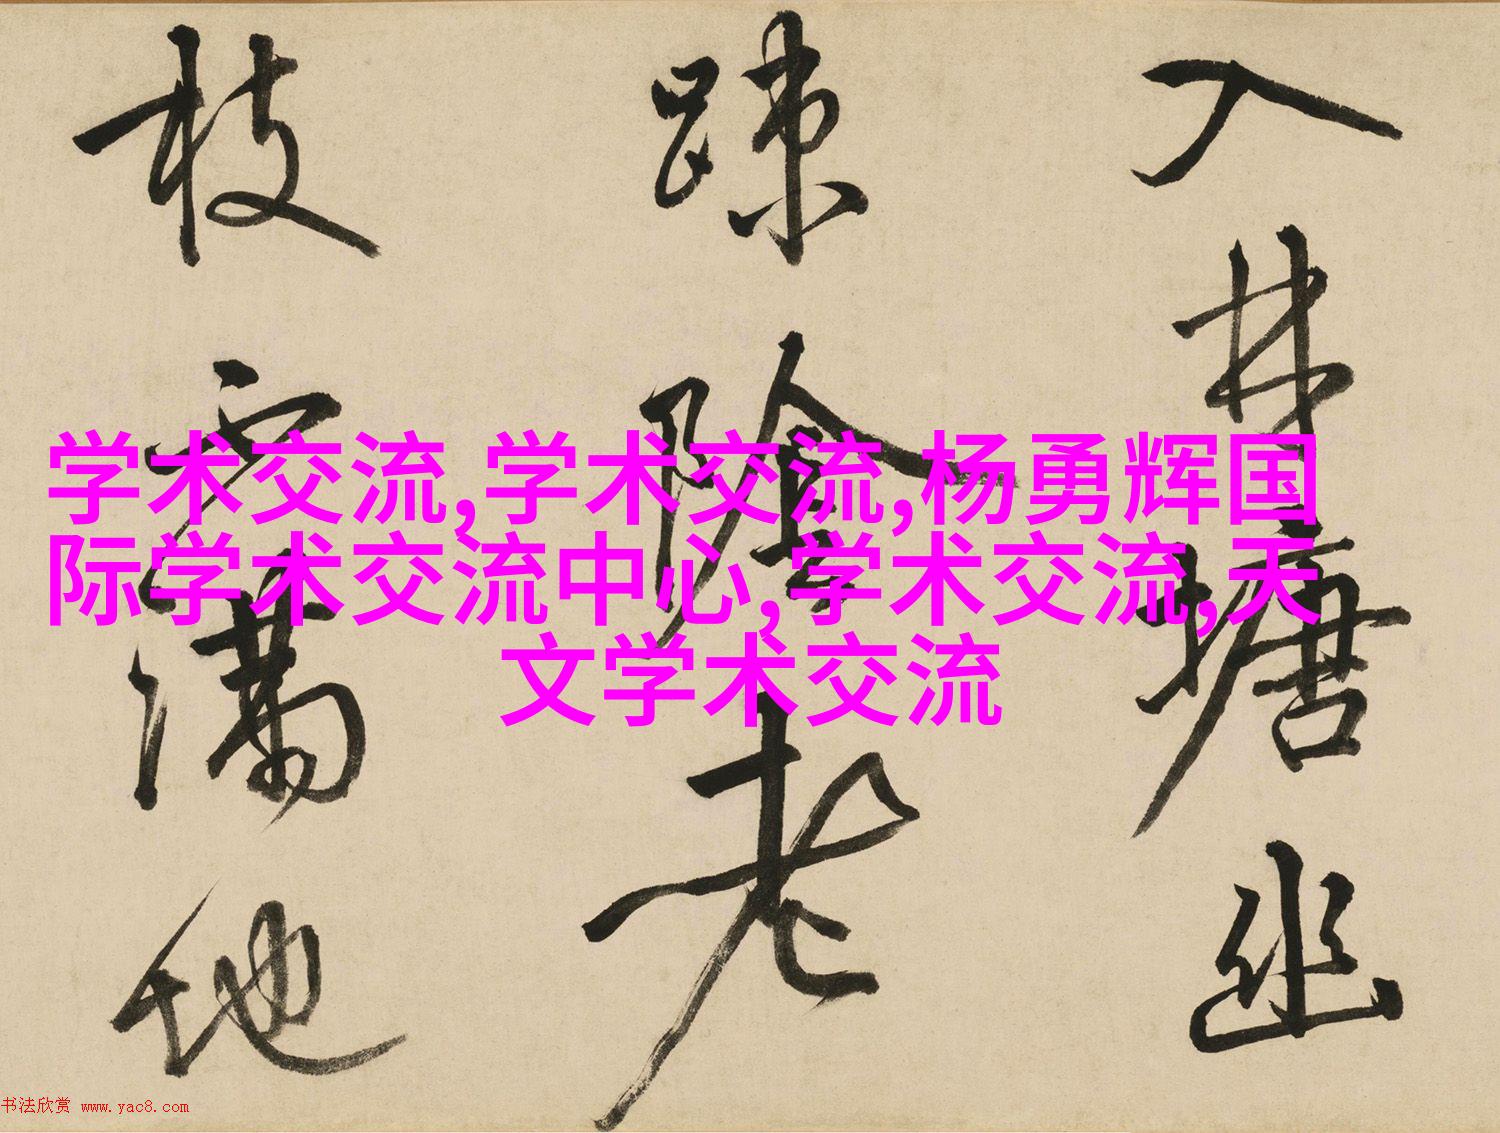 入林塘幽
疎陰老
枝霜滿地
学术交流,学术交流,杨勇辉国
际学术交流中心,学术交流,天
文学术交流
书法欣赏 www.yac8.com